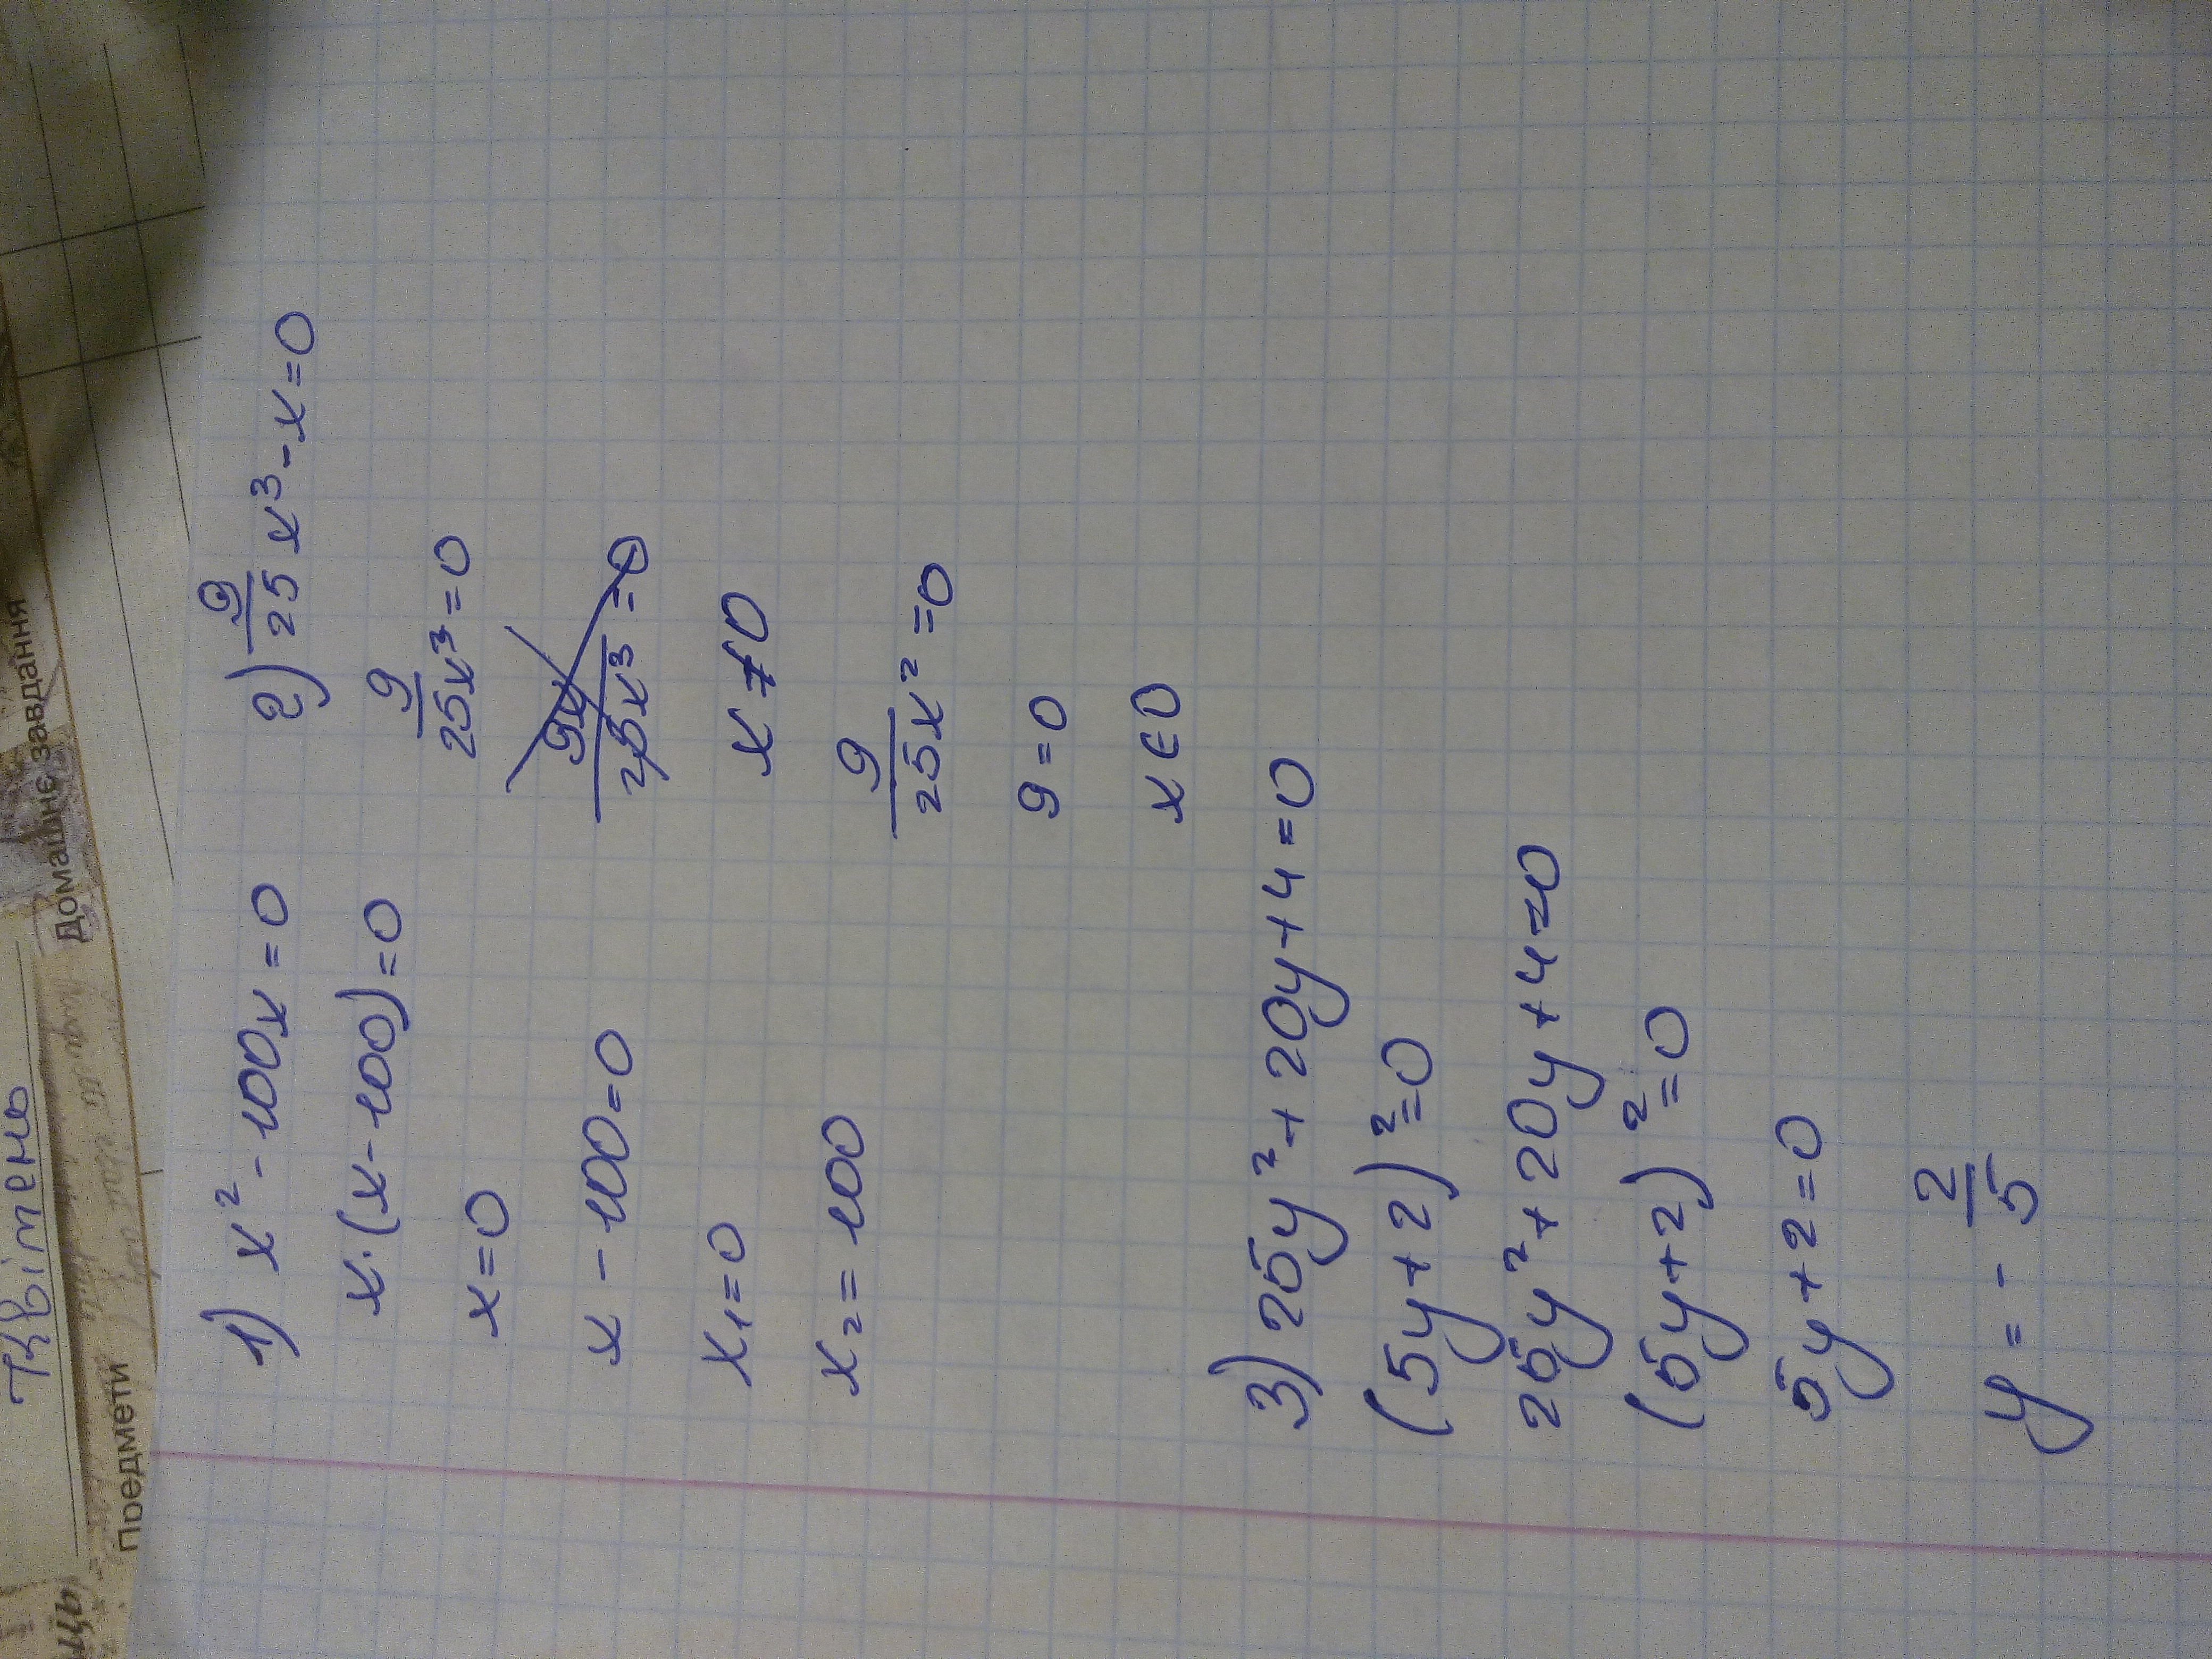 Квітень
Предмети
Домашнє завдання
1) x² - 100x = 0
x·(x - 100) = 0
x = 0
x - 100 = 0
x₁ = 0
x₂ = 100
2) 9/25 x³ - x = 0
9/25x³ = 0
9x/25x³ = 0
x ≠ 0
9/25x² = 0
9 = 0
x ∈ 0
3) 25y² + 20y + 4 = 0
(5y + 2)² = 0
25y² + 20y + 4 = 0
(5y + 2)² = 0
5y + 2 = 0
y = - 2/5